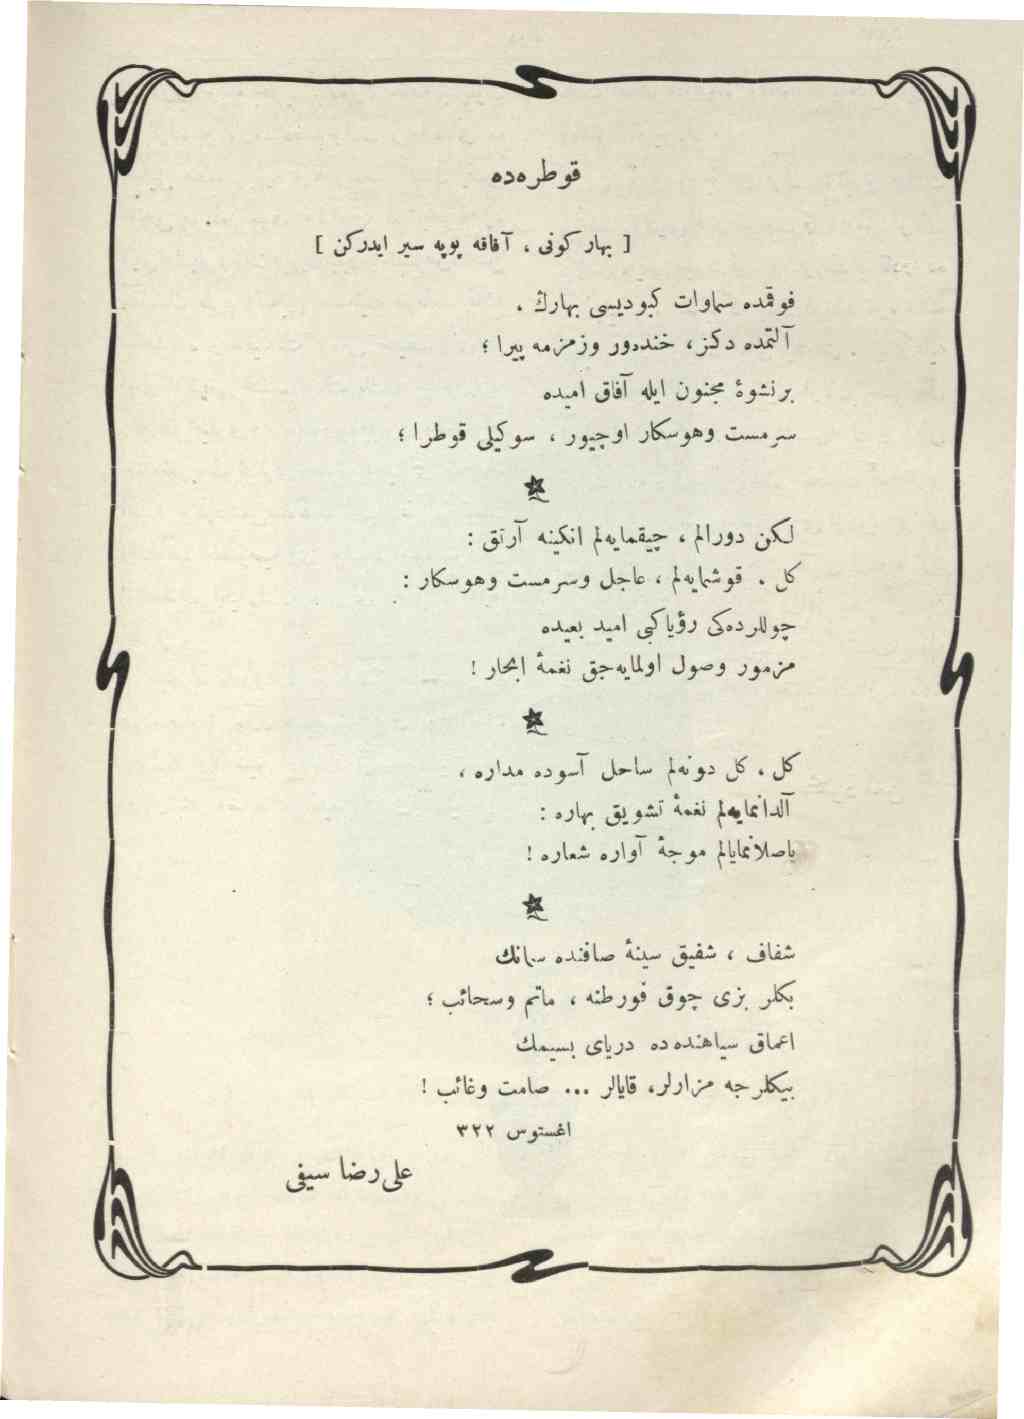 قوطره‌ده
[ بهار كونی ، آفاقه پوپه سیر ایدركن ]
فوقمده سماوات كبودیسی بهارڭ .
آلتمده دكز، خنده‌ور وزمزمه پیرا ؛
بر نشوهٔ مجنون ایله آفاق امیده
سرمست وهوسكار اوچیور ، سوكیلی قوطرا ؛
لكن دورالم ، چیقمایه‌لم انكینه آرتق :
كل . قوشمایه‌لم ، عاجل وسرمست وهوسكار :
چوللرده‌كی رؤیا كبی امید بعیده
مزمور وصول اولمایه‌جق نغمهٔ ابحار !
كل ، كل دونه‌لم ساحل آسوده مداره ،
آلدانمایه‌لم نغمهٔ تشویق بهاره :
یاصلانمایالم موجهٔ آواره شعاره !
شفاف ، شفیق سینهٔ صافنده سمانڭ
بكلر بزی چوق فورطنه ، ماتم وسحائب ؛
اعماق سیاهنده‌ده دریای بسیمك
بیكلرجه مزارلر، قایالر ... صامت وغائب !
اغستوس ٣٢٢
علی‌رضا سیفی